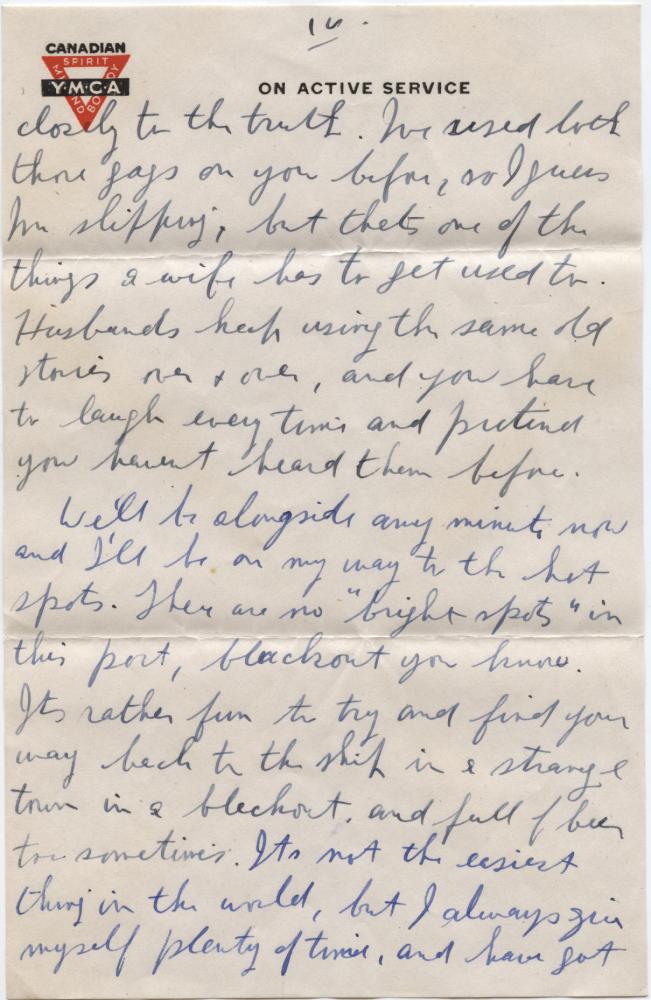 14.
CANADIAN
SPIRIT
MIND
BODY
Y·M·C·A
ON ACTIVE SERVICE
closely to the truth. I've used both
those gags on you before, so I guess
I'm slipping, but thats one of the
things a wife has to get used to.
Husbands keep using the same old
stories over & over, and you have
to laugh every time and pretend
you havent heard them before.
We'll be alongside any minute now
and I'll be on my way to the hot
spots. There are no "bright spots" in
this port, blackout you know.
Its rather fun to try and find your
way back to the ship in a strange
town in a blackout. and full of beer
too sometimes. Its not the easiest
thing in the world, but I always give
myself plenty of time, and have got